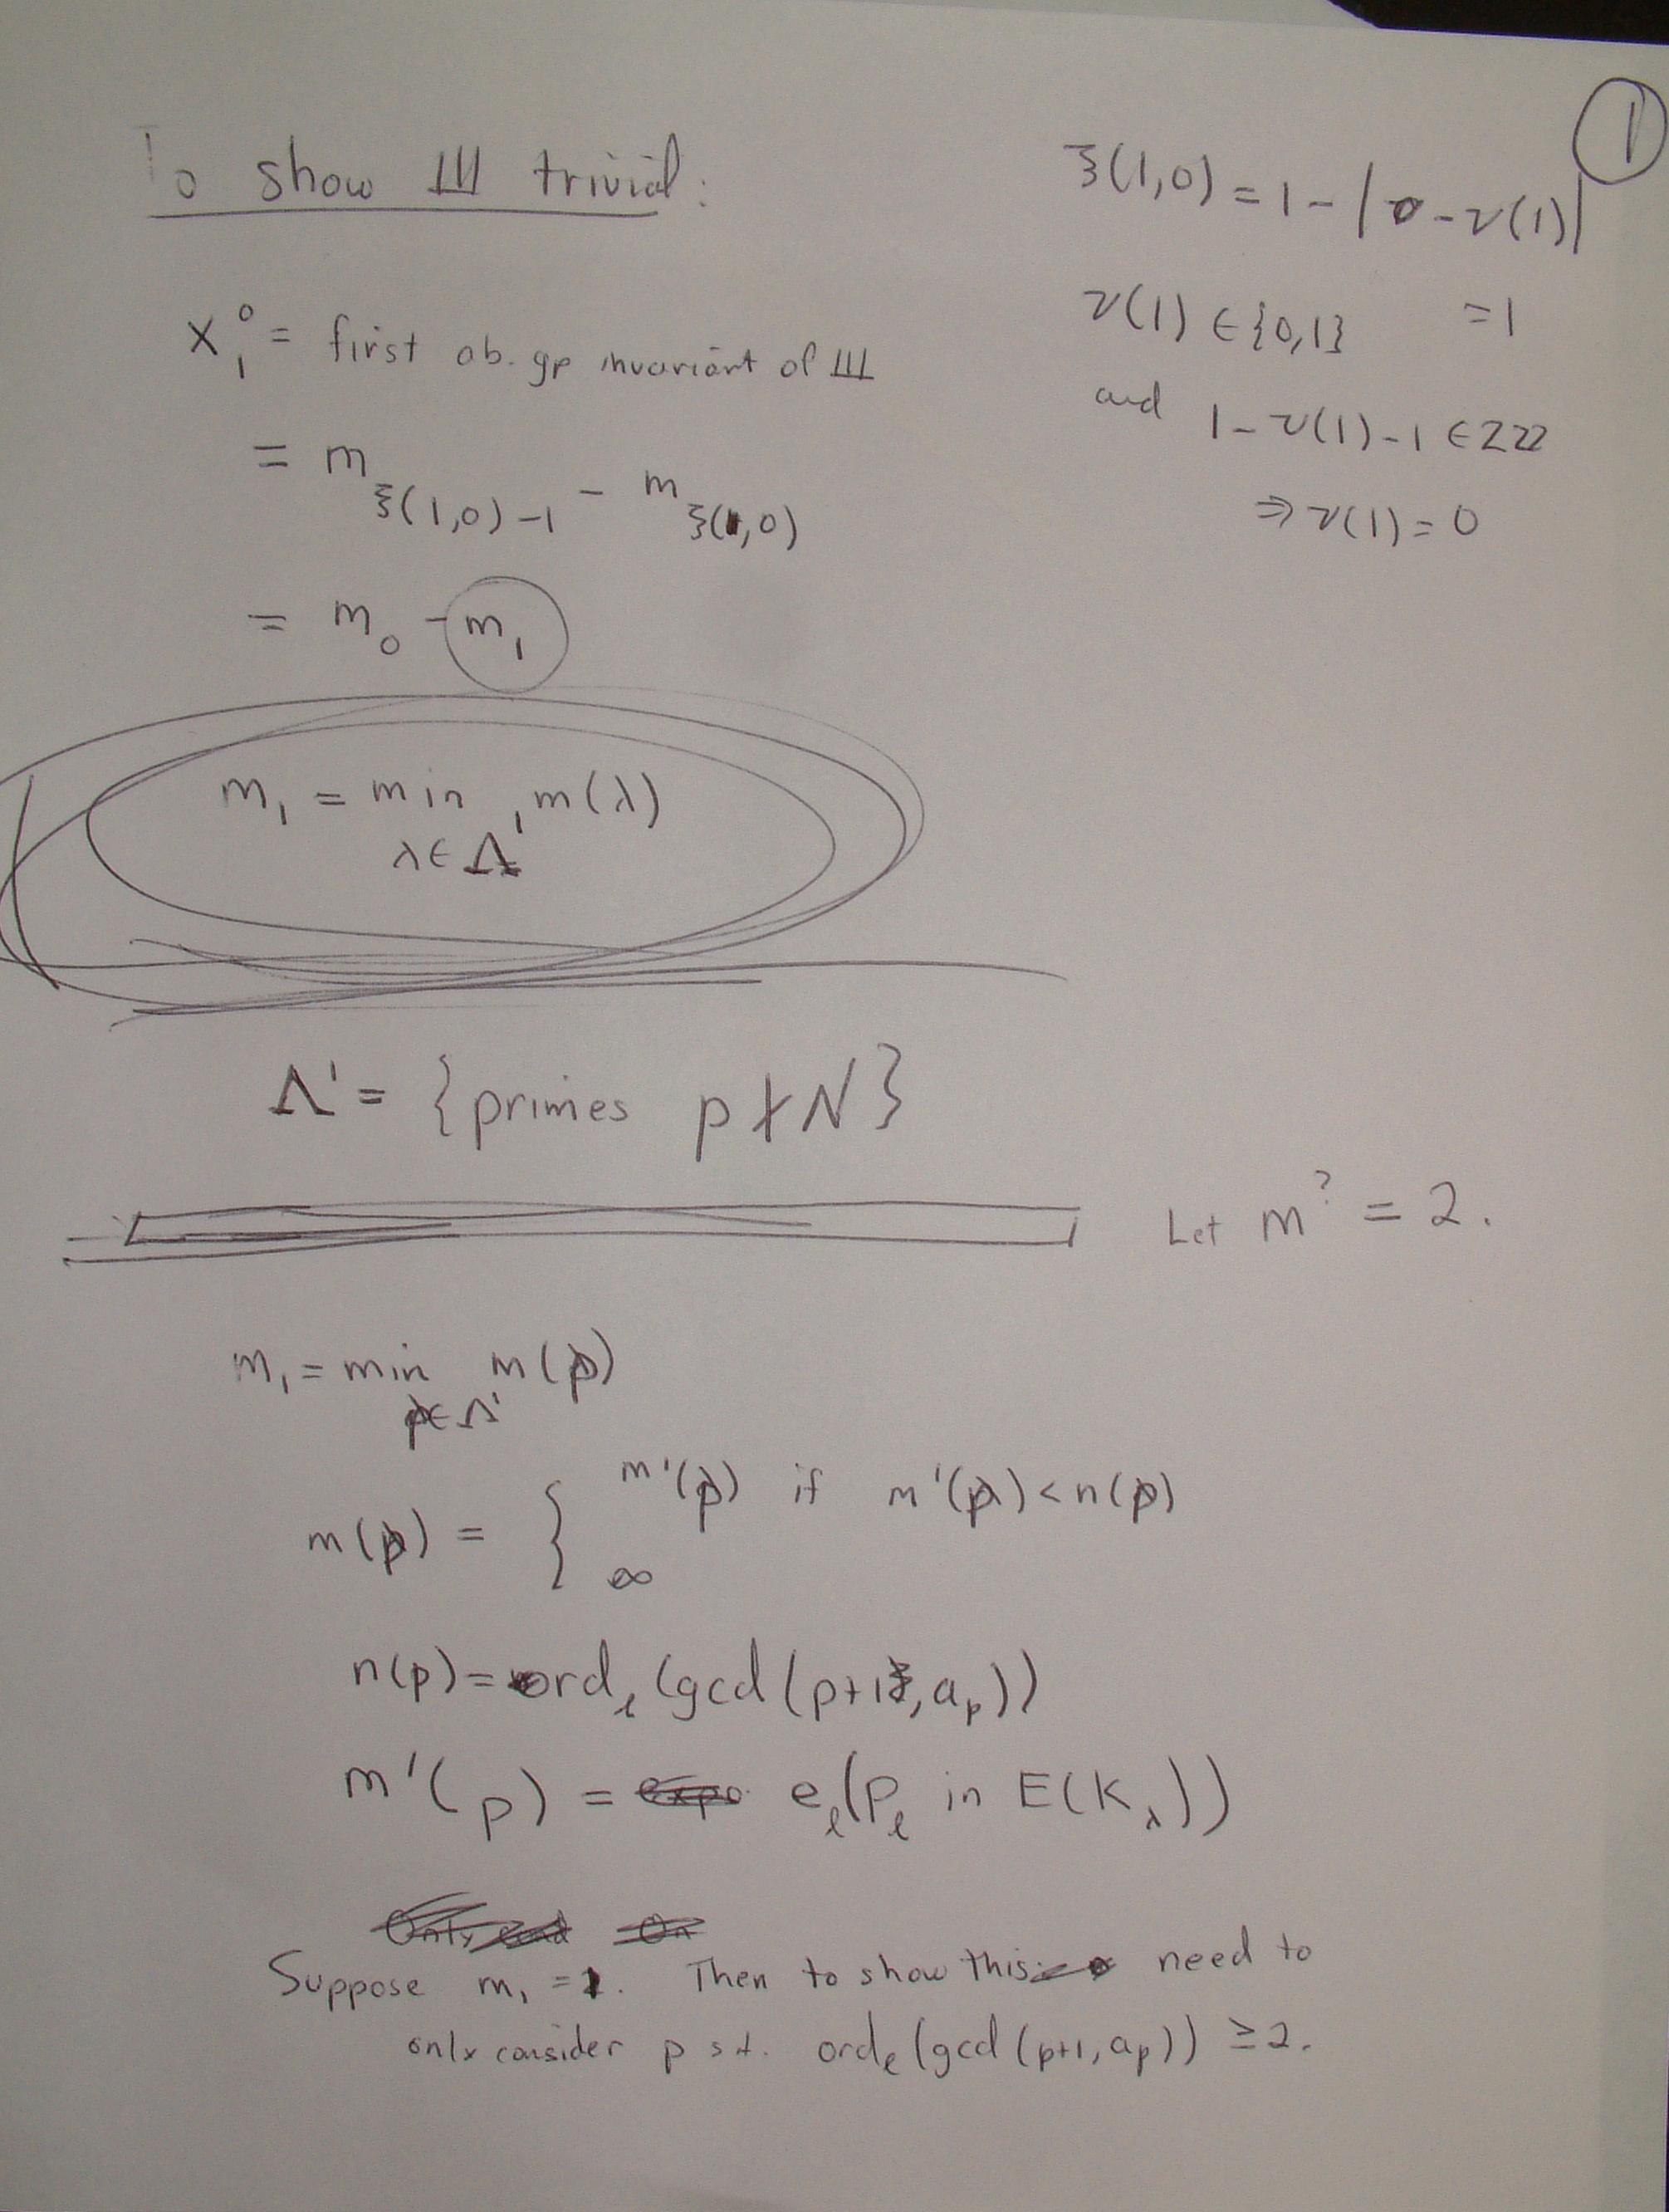 1
To show Ш trivial:
ξ(1,0) = 1 - |0 - ν(1)|
= 1
ν(1) ∈ {0,1}
and 1 - ν(1) - 1 ∈ 2ℤ
⇒ ν(1) = 0
x₁⁰ = first ab. gp invariant of Ш
= m_{ξ(1,0)-1} - m_{ξ(1,0)}
= m₀ - m₁
m₁ = min m(λ)
λ ∈ Λ'
Λ' = {primes p ∤ N}
Let m^? = 2.
m₁ = min m(p)
p ∈ Λ'
m(p) = { m'(p) if m'(p) < n(p)
∞
n(p) = ord_ℓ (gcd(p+1, a_p))
m'(p) = e_ℓ(P_ℓ in E(K_λ))
Suppose m₁ = 1. Then to show this need to
only consider p s.t. ord_ℓ (gcd(p+1, a_p)) ≥ 2.